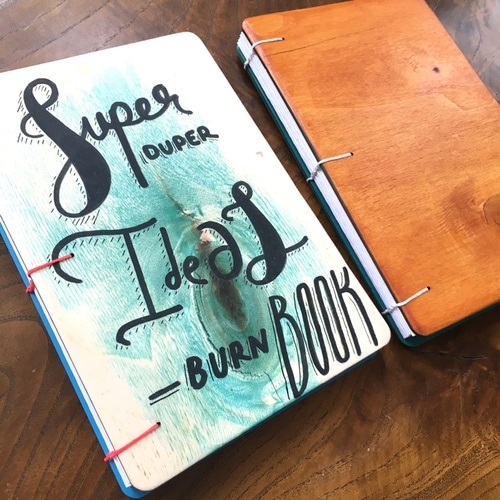 Super
DUPER
IdeaS
= BURN BOOK